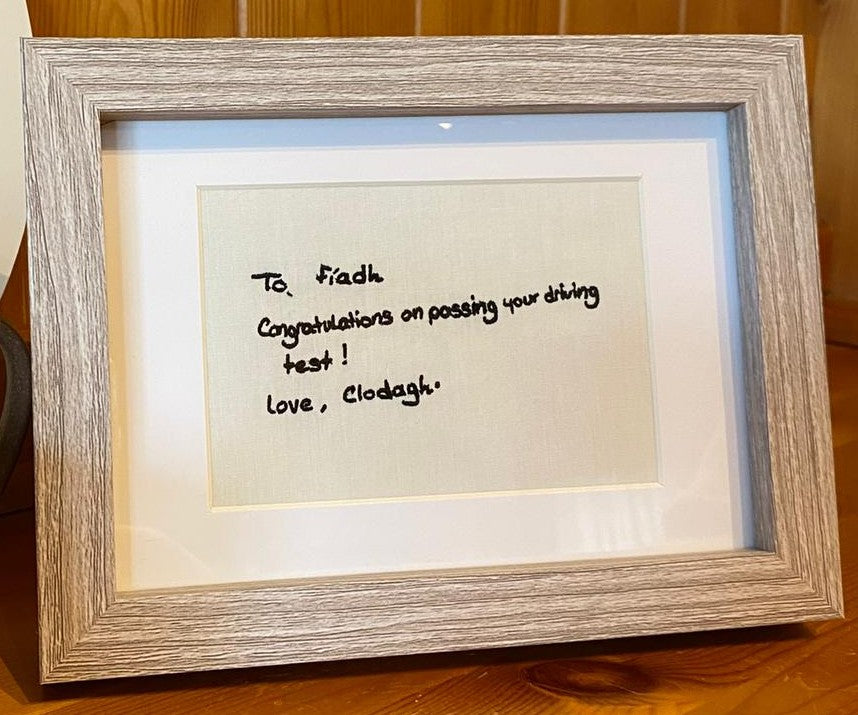 To, Fíadh
Congratulations on possing your driving
test!
love, Clodagh.